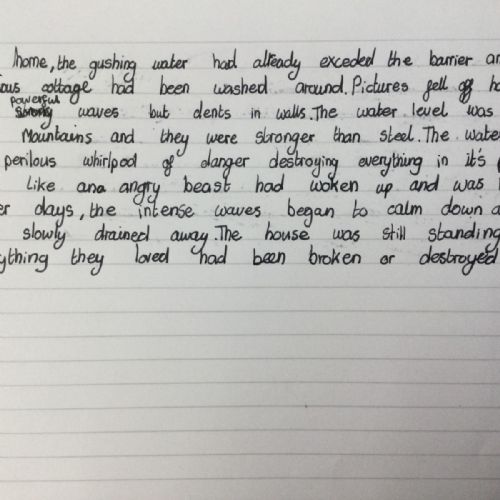 home, the gushing water had already exceded the barrier an
ous cottage had been washed around. Pictures fell off ho
powerful
strong waves but dents in walls. The water level was
Mountains and they were stronger than steel. The wate
perilous whirlpool of danger destroying everything in it's
Like ana angry beast had woken up and was
er days, the intense waves began to calm down a
slowly drained away. The house was still standing
ything they loved had been broken or destroyed